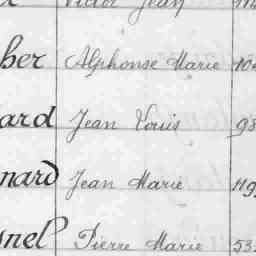 Victor Jean
her Alphonse Marie 104
ard Jean Louis 98
nard Jean Marie 119
snel Pierre Marie 53